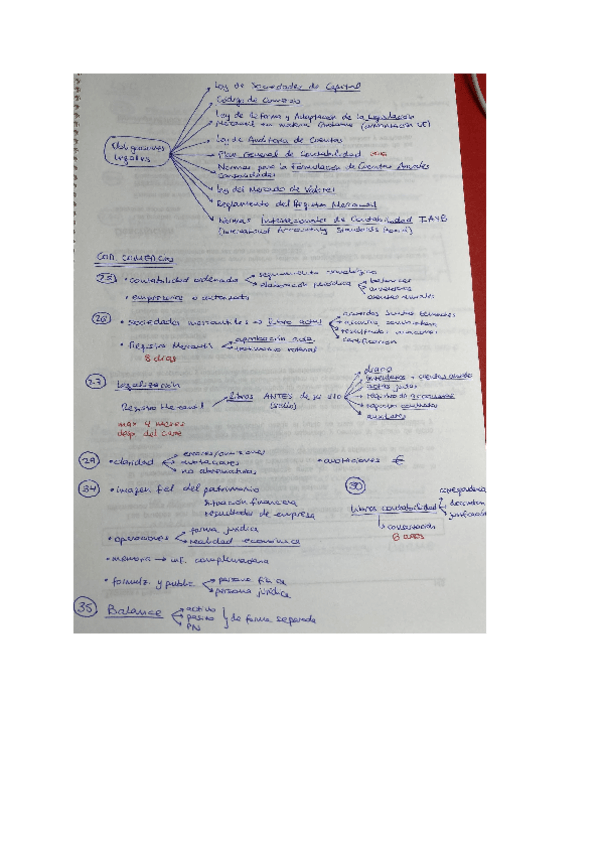 Ley de Sociedades de Capital
Código de Comercio
Ley de Reforma y Adaptación de la Legislación
Mercantil en materia (UE)
Obligaciones
legales
Ley de Auditoría de Cuentas
Plan General de Contabilidad
Normas para la Formulación de Cuentas Anuales
Consolidadas
Ley del Mercado de Valores
Reglamento del Registro Mercantil
Normas Internacionales de Contabilidad IASB
(International Accounting Standards Board)
COD. COMERCIO
25 • contabilidad ordenada seguimiento cronológico
elaboración periódica balances
inventarios
• empresario o autorizado
26 • sociedades mercantiles → libro actas acuerdos juntas
resultados
• Registro Mercantil aprobación acta
8 días
27 Legalización
Registro Mercantil libros ANTES de su uso
(sello)
diario
inventarios + cuentas anuales
actas juntas
registros
registros
auxiliares
max 4 meses
desp. del cierre
29 • claridad
no abreviaturas
• anotaciones €
34 • imagen fiel del patrimonio
situación financiera
resultados de empresa
• operaciones forma jurídica
realidad económica
• memoria → inf. complementaria
• formulac. y public. persona física
persona jurídica
30
libros contabilidad
correspondencia
documentación
justificantes
conservación
6 años
35 Balance activo
pasivo
PN
de forma separada